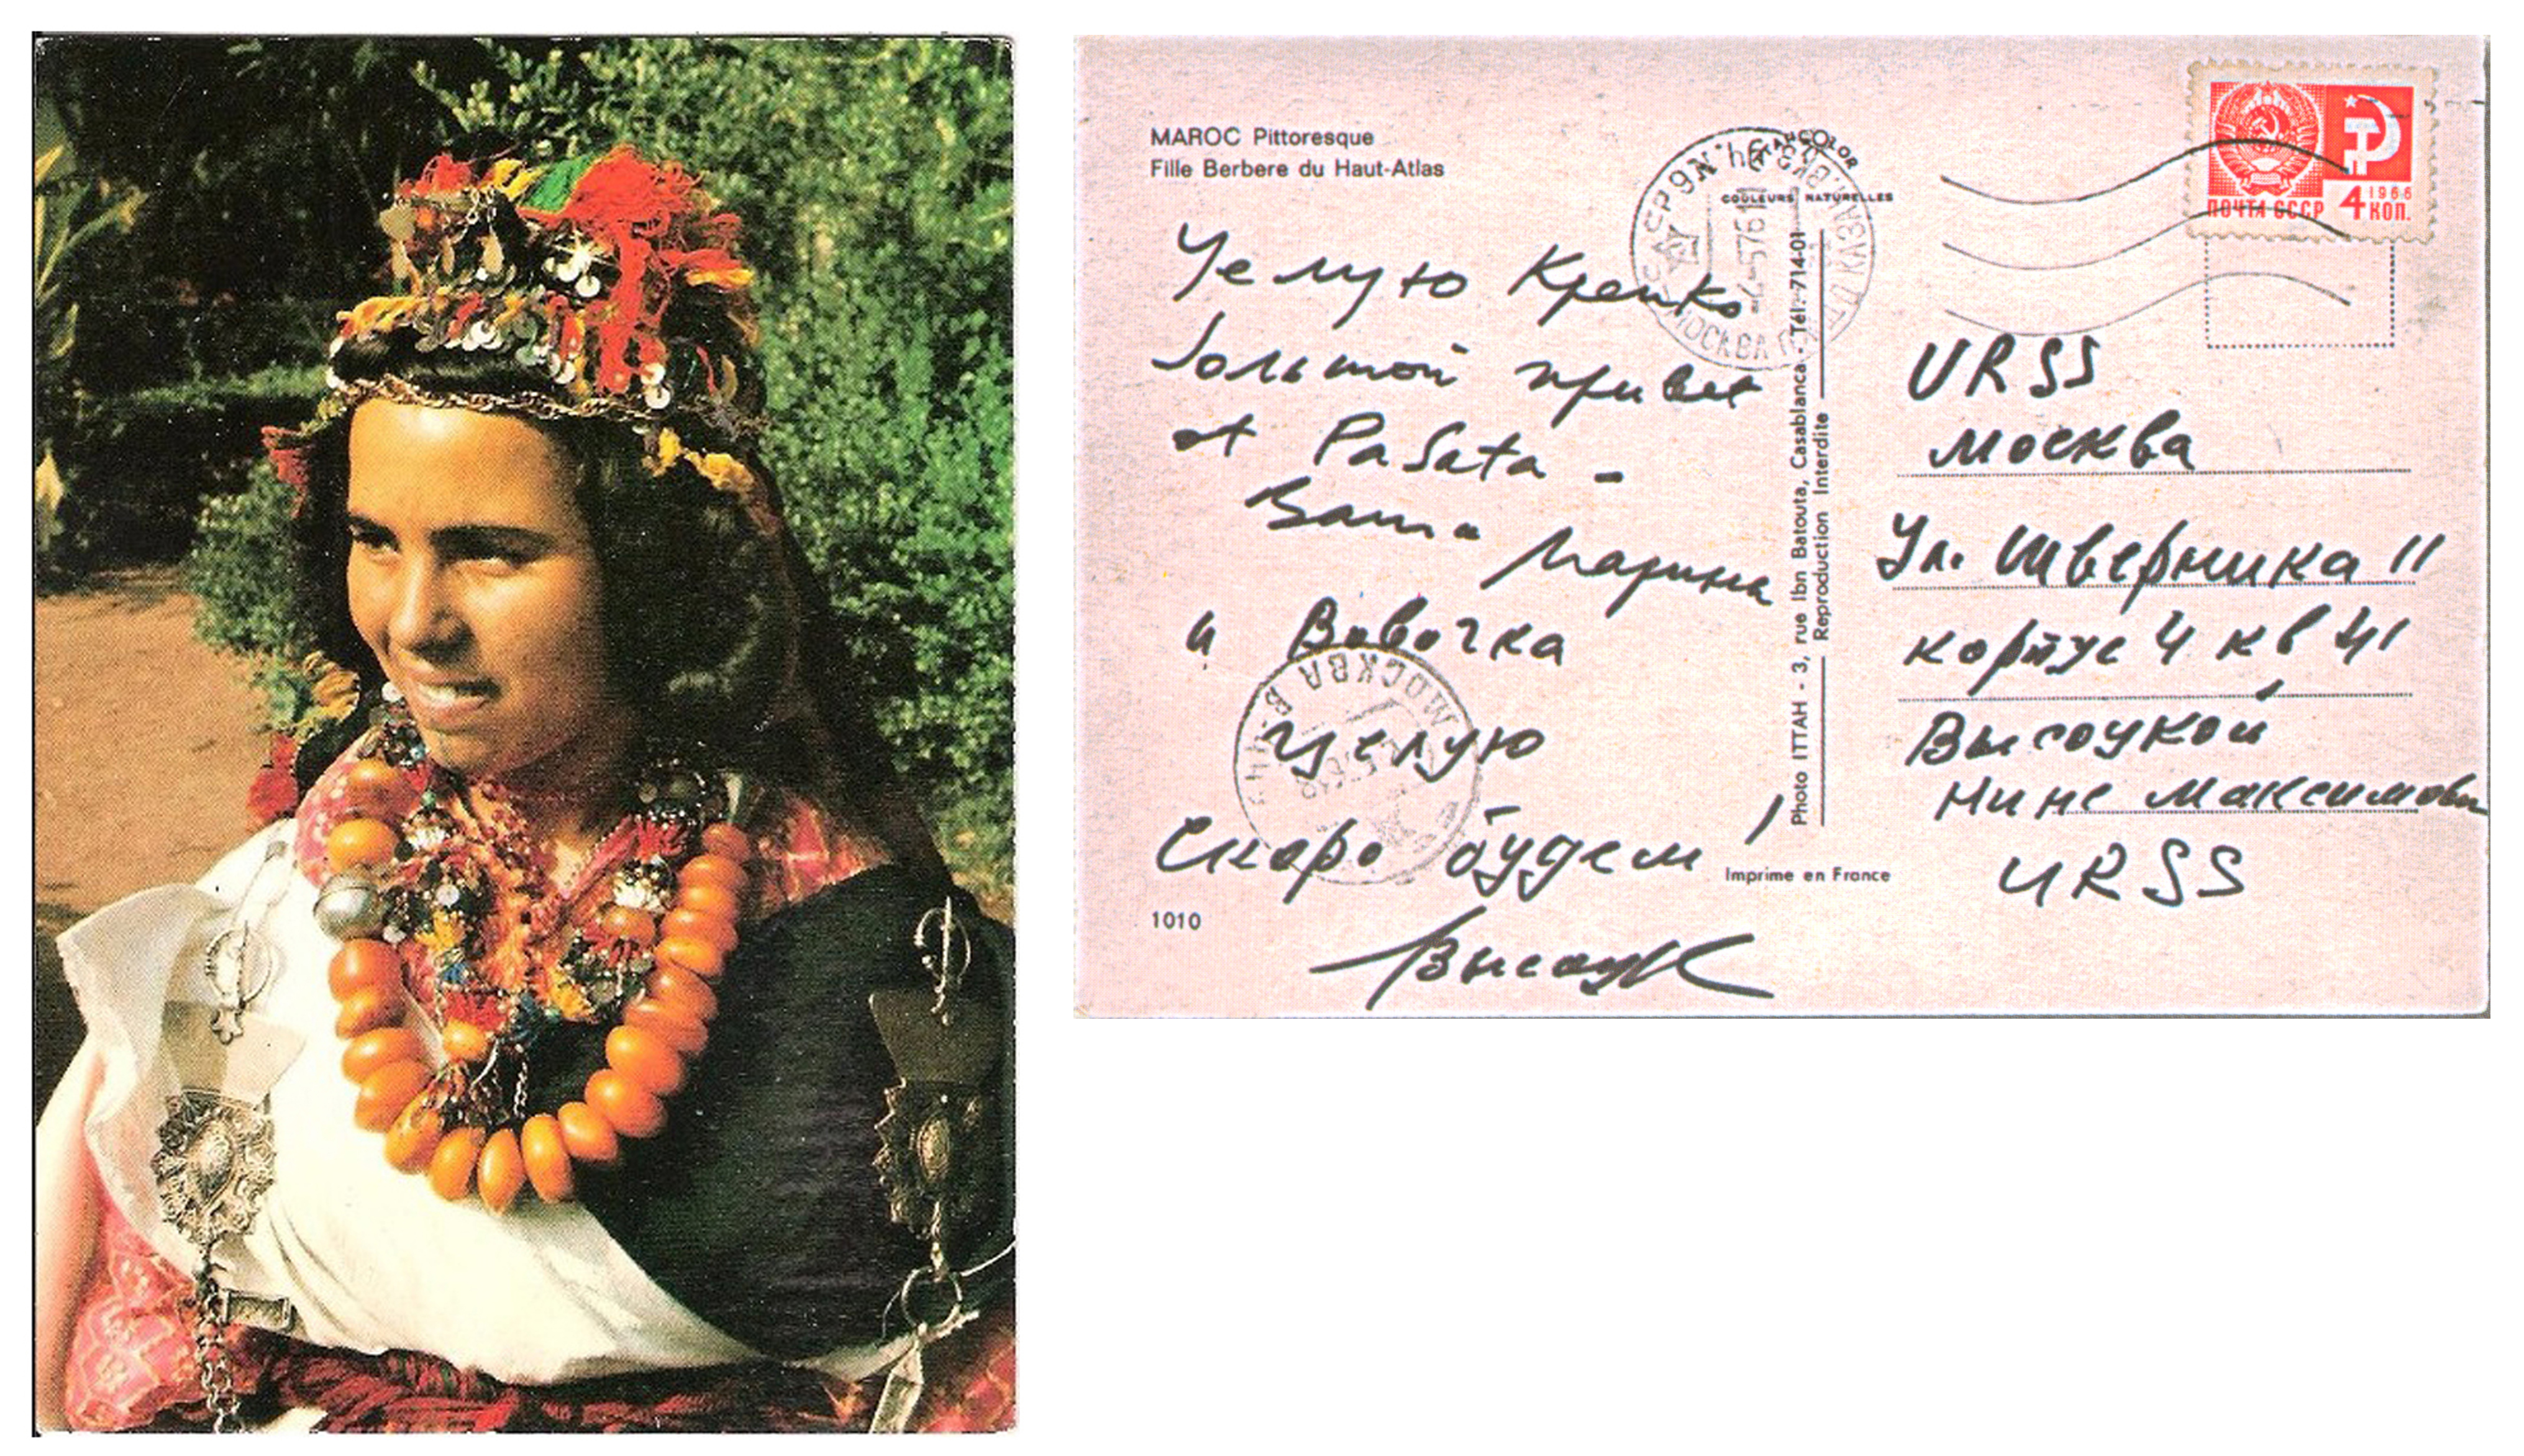 MAROC Pittoresque
Fille Berbere du Haut-Atlas
COULEURS NATURELLES
Целую Крепко
большой привет
от Рабата -
Ваша Марина
и Вовочка
целую
Скоро будем,
Высоцк
1010
Photo ITTAH - 3, rue Ibn Batouta, Casablanca - Tél. 714-01
Reproduction Interdite
Imprime en France
ПОЧТА СССР 4 1966 КОП.
МОСКВА
МОСКВА
URSS
Москва
Ул. Шверника 11
корпус 4 кв 41
Высоцкой
Нине Максимовн
URSS